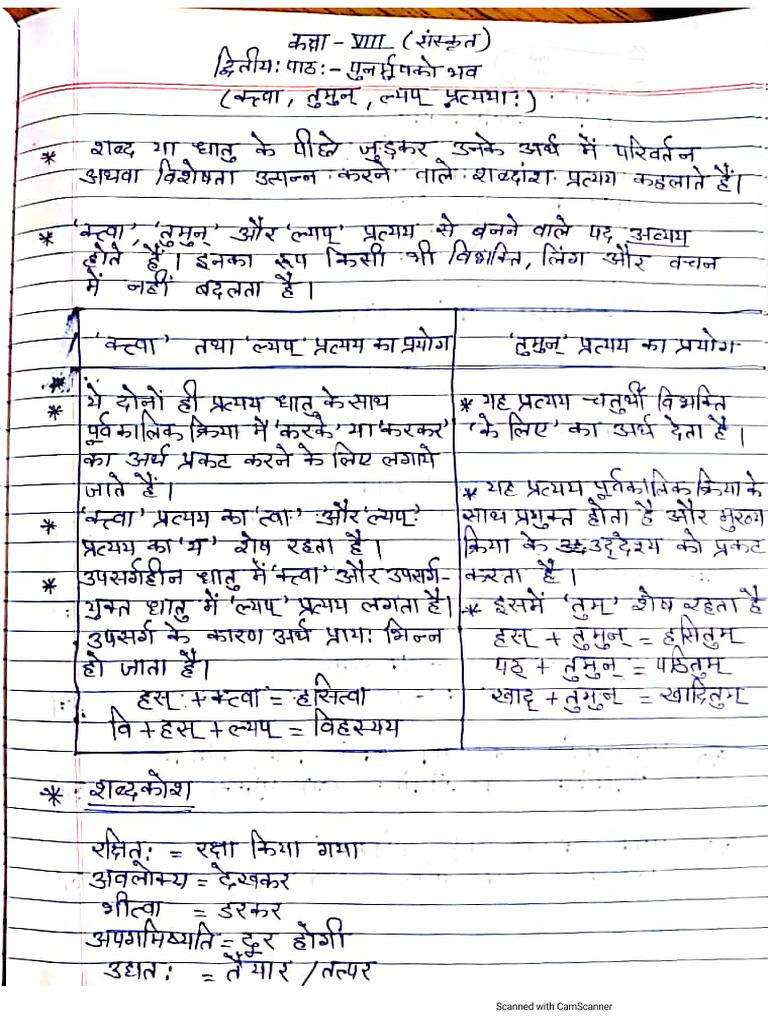 कक्षा - VIII (संस्कृत)
द्वितीय: पाठ: - पुनर्मूषको भव
(क्त्वा, तुमुन्, ल्यप् प्रत्यया:)
* शब्द या धातु के पीछे जुड़कर उनके अर्थ में परिवर्तन
अथवा विशेषता उत्पन्न करने वाले शब्दांश प्रत्यय कहलाते हैं।
* 'क्त्वा', 'तुमुन्' और 'ल्यप्' प्रत्यय से बनने वाले पद अव्यय
होते हैं। इनका रूप किसी भी विभक्ति, लिंग और वचन
में नहीं बदलता है।
'क्त्वा' तथा 'ल्यप्' प्रत्यय का प्रयोग
* ये दोनों ही प्रत्यय धातु के साथ
पूर्वकालिक क्रिया में 'करके' या 'करकर'
का अर्थ प्रकट करने के लिए लगाये
जाते हैं।
* 'क्त्वा' प्रत्यय का 'त्वा' और 'ल्यप्'
प्रत्यय का 'य' शेष रहता है।
* उपसर्गहीन धातु में 'क्त्वा' और उपसर्ग-
युक्त धातु में 'ल्यप्' प्रत्यय लगता है।
उपसर्ग के कारण अर्थ प्राय: भिन्न
हो जाता है।
हस् + क्त्वा = हसित्वा
वि + हस् + ल्यप् = विहस्यय
'तुमुन्' प्रत्यय का प्रयोग
* यह प्रत्यय चतुर्थी विभक्ति
'के लिए' का अर्थ देता है।
* यह प्रत्यय पूर्वकालिक क्रिया के
साथ प्रयुक्त होता है और मुख्य
क्रिया के उद्देश्य को प्रकट
करता है।
* इसमें 'तुम्' शेष रहता है
हस् + तुमुन् = हसितुम्
पठ् + तुमुन् = पठितुम्
खाद् + तुमुन् = खादितुम्
* शब्दकोश
रक्षित: = रक्षा किया गया
अवलोक्य = देखकर
भीत्वा = डरकर
अपगमिष्यति = दूर होगी
उद्यत: = तैयार / तत्पर
Scanned with CamScanner